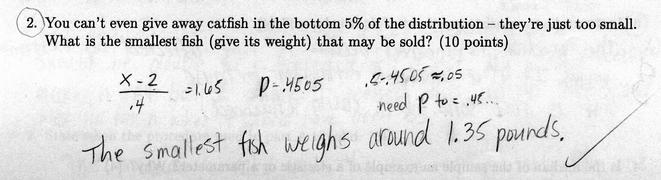 2. You can't even give away catfish in the bottom 5% of the distribution – they're just too small.
What is the smallest fish (give its weight) that may be sold? (10 points)
X - 2
.4
=1.65
P=.4505
.5-.4505 ≈ .05
need P to = .45...
The smallest fish weighs around 1.35 pounds.